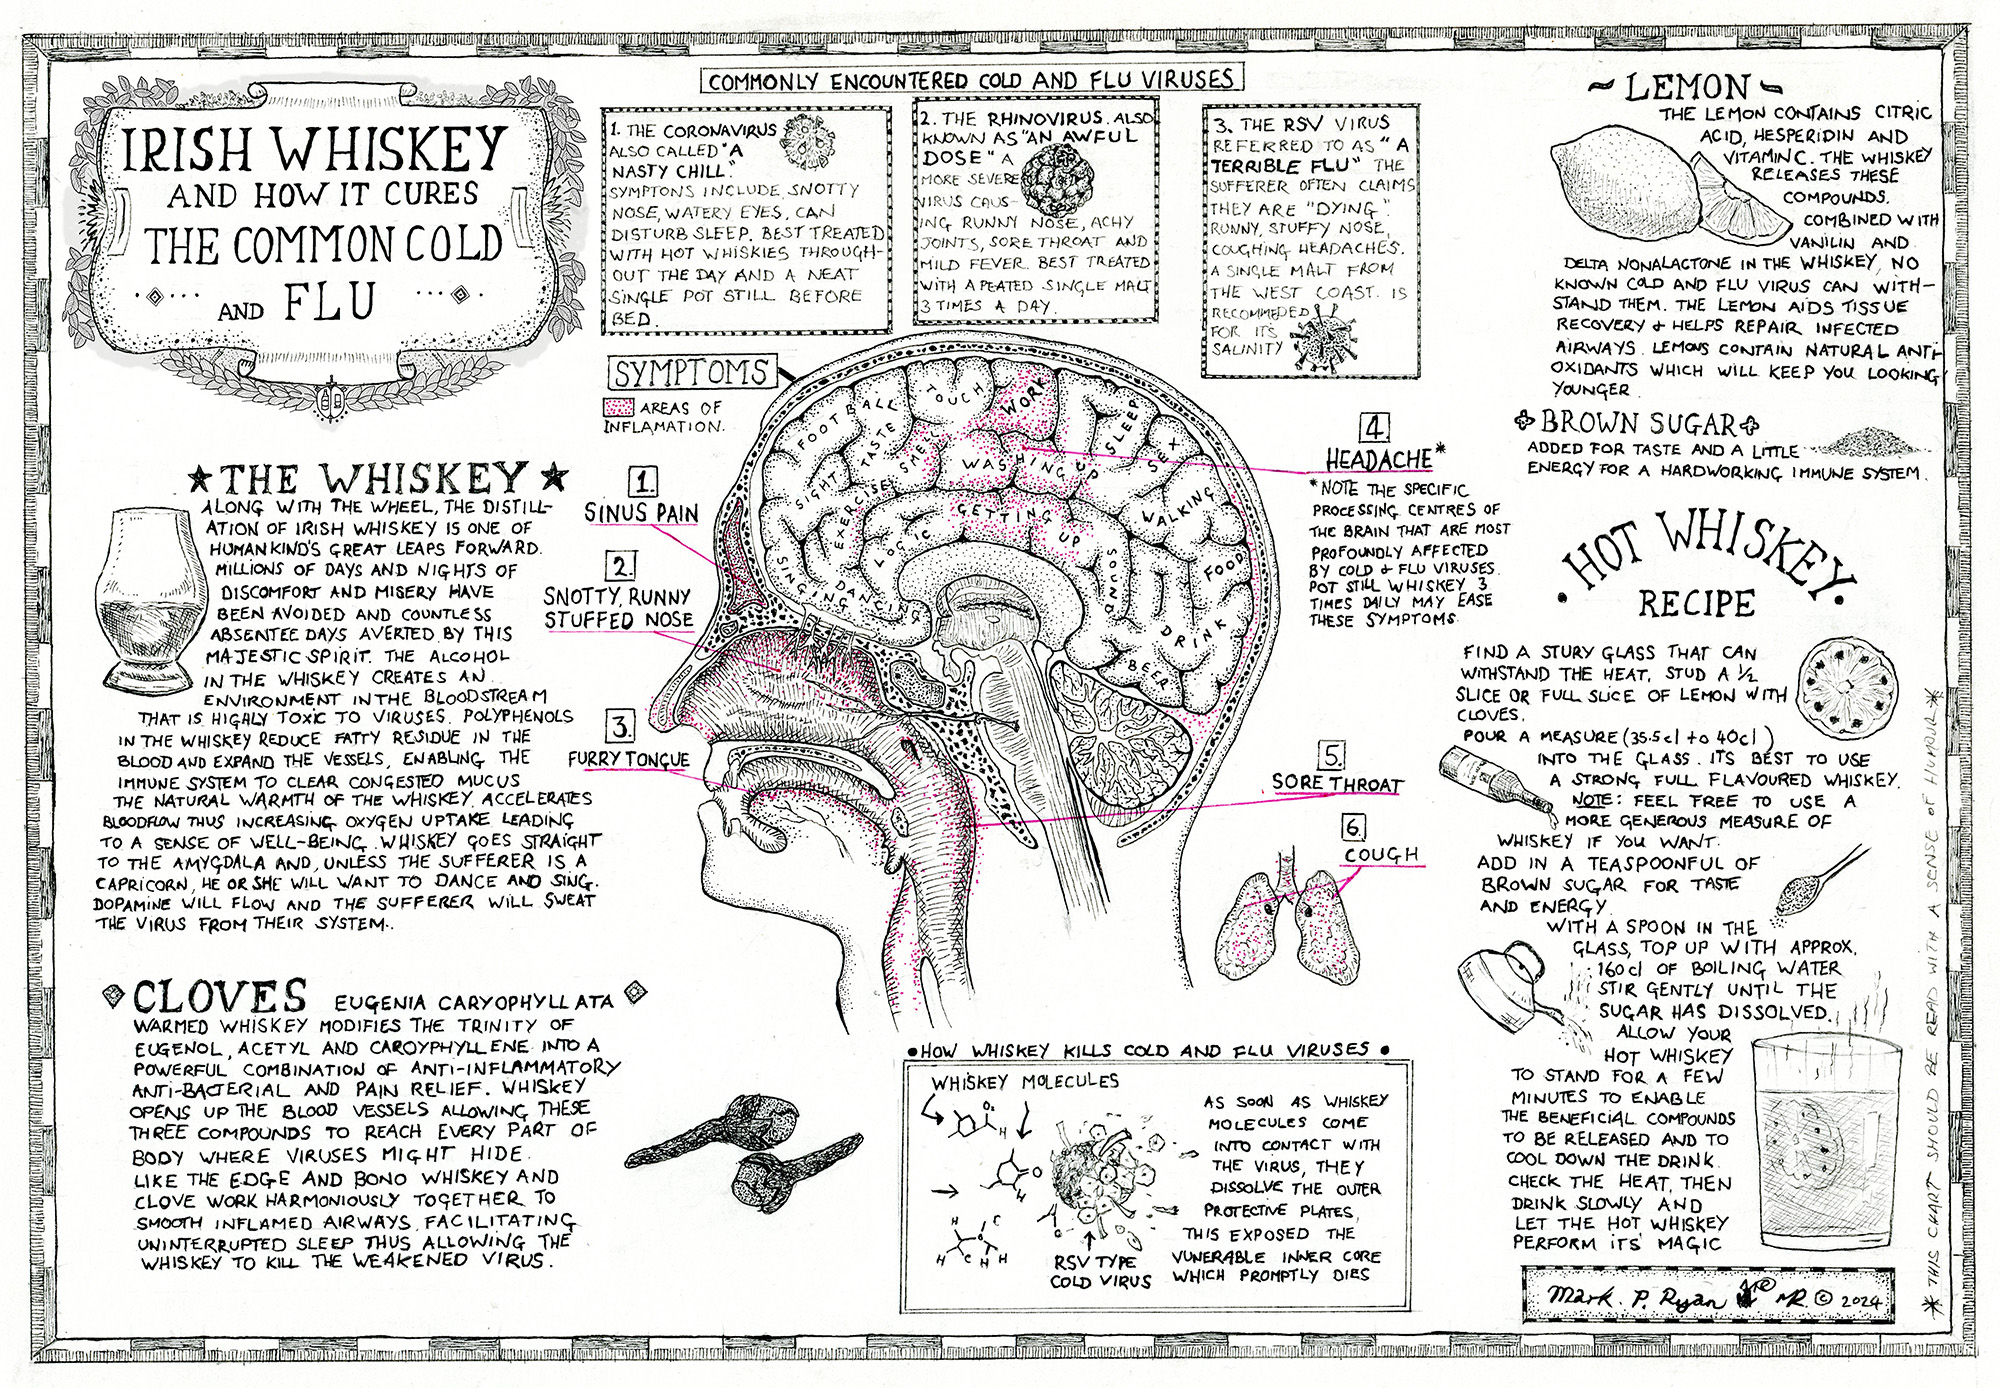 IRISH WHISKEY
AND HOW IT CURES
THE COMMON COLD
AND FLU
COMMONLY ENCOUNTERED COLD AND FLU VIRUSES
1. THE CORONAVIRUS
ALSO CALLED "A
NASTY CHILL."
SYMPTONS INCLUDE SNOTTY
NOSE, WATERY EYES, CAN
DISTURB SLEEP. BEST TREATED
WITH HOT WHISKIES THROUGH-
OUT THE DAY AND A NEAT
SINGLE POT STILL BEFORE
BED.
2. THE RHINOVIRUS. ALSO
KNOWN AS "AN AWFUL
DOSE" A
MORE SEVERE
VIRUS CAUS-
ING RUNNY NOSE, ACHY
JOINTS, SORE THROAT AND
MILD FEVER. BEST TREATED
WITH A PEATED SINGLE MALT
3 TIMES A DAY.
3. THE RSV VIRUS
REFERRED TO AS "A
TERRIBLE FLU" THE
SUFFERER OFTEN CLAIMS
THEY ARE "DYING".
RUNNY, STUFFY NOSE,
COUGHING HEADACHES.
A SINGLE MALT FROM
THE WEST COAST. IS
RECOMMEDED
FOR ITS
SALINITY
~ LEMON ~
THE LEMON CONTAINS CITRIC
ACID, HESPERIDIN AND
VITAMIN C. THE WHISKEY
RELEASES THESE
COMPOUNDS.
COMBINED WITH
VANILIN AND
DELTA NONALACTONE IN THE WHISKEY, NO
KNOWN COLD AND FLU VIRUS CAN WITH-
STAND THEM. THE LEMON AIDS TISSUE
RECOVERY & HELPS REPAIR INFECTED
AIRWAYS. LEMONS CONTAIN NATURAL ANTI-
OXIDANTS WHICH WILL KEEP YOU LOOKING
YOUNGER
BROWN SUGAR
ADDED FOR TASTE AND A LITTLE
ENERGY FOR A HARDWORKING IMMUNE SYSTEM.
SYMPTOMS
AREAS OF
INFLAMATION.
1.
SINUS PAIN
2.
SNOTTY, RUNNY
STUFFED NOSE
3.
FURRY TONGUE
4
HEADACHE*
*NOTE THE SPECIFIC
PROCESSING CENTRES OF
THE BRAIN THAT ARE MOST
PROFOUNDLY AFFECTED
BY COLD & FLU VIRUSES.
POT STILL WHISKEY 3
TIMES DAILY MAY EASE
THESE SYMPTOMS.
5.
SORE THROAT
6.
COUGH
FOOTBALL
TOUCH
WORK
SLEEP
SEX
TASTE
SMELL
WASHING UP
SIGHT
EXERCISE
GETTING UP
WALKING
LOGIC
SOUND
FOOD
SINGING
DANCING
DRINK
BEER
THE WHISKEY
ALONG WITH THE WHEEL, THE DISTILL-
ATION OF IRISH WHISKEY IS ONE OF
HUMANKIND'S GREAT LEAPS FORWARD.
MILLIONS OF DAYS AND NIGHTS OF
DISCOMFORT AND MISERY HAVE
BEEN AVOIDED AND COUNTLESS
ABSENTEE DAYS AVERTED BY THIS
MAJESTIC SPIRIT. THE ALCOHOL
IN THE WHISKEY CREATES AN
ENVIRONMENT IN THE BLOODSTREAM
THAT IS HIGHLY TOXIC TO VIRUSES. POLYPHENOLS
IN THE WHISKEY REDUCE FATTY RESIDUE IN THE
BLOOD AND EXPAND THE VESSELS, ENABLING THE
IMMUNE SYSTEM TO CLEAR CONGESTED MUCUS
THE NATURAL WARMTH OF THE WHISKEY. ACCELERATES
BLOODFLOW THUS INCREASING OXYGEN UPTAKE LEADING
TO A SENSE OF WELL-BEING. WHISKEY GOES STRAIGHT
TO THE AMYGDALA AND, UNLESS THE SUFFERER IS A
CAPRICORN, HE OR SHE WILL WANT TO DANCE AND SING.
DOPAMINE WILL FLOW AND THE SUFFERER WILL SWEAT
THE VIRUS FROM THEIR SYSTEM..
CLOVES EUGENIA CARYOPHYLLATA
WARMED WHISKEY MODIFIES THE TRINITY OF
EUGENOL, ACETYL AND CAROYPHYLLENE INTO A
POWERFUL COMBINATION OF ANTI-INFLAMMATORY
ANTI-BACTERIAL AND PAIN RELIEF. WHISKEY
OPENS UP THE BLOOD VESSELS ALLOWING THESE
THREE COMPOUNDS TO REACH EVERY PART OF
BODY WHERE VIRUSES MIGHT HIDE.
LIKE THE EDGE AND BONO WHISKEY AND
CLOVE WORK HARMONIOUSLY TOGETHER TO
SMOOTH INFLAMED AIRWAYS, FACILITATING
UNINTERRUPTED SLEEP THUS ALLOWING THE
WHISKEY TO KILL THE WEAKENED VIRUS.
HOW WHISKEY KILLS COLD AND FLU VIRUSES
WHISKEY MOLECULES
AS SOON AS WHISKEY
MOLECULES COME
INTO CONTACT WITH
THE VIRUS, THEY
DISSOLVE THE OUTER
PROTECTIVE PLATES,
THIS EXPOSED THE
VUNERABLE INNER CORE
WHICH PROMPTLY DIES
RSV TYPE
COLD VIRUS
HOT WHISKEY
RECIPE
FIND A STURY GLASS THAT CAN
WITHSTAND THE HEAT, STUD A ½
SLICE OR FULL SLICE OF LEMON WITH
CLOVES.
POUR A MEASURE (35.5cl to 40cl)
INTO THE GLASS. ITS BEST TO USE
A STRONG FULL FLAVOURED WHISKEY.
NOTE: FEEL FREE TO USE A
MORE GENEROUS MEASURE OF
WHISKEY IF YOU WANT.
ADD IN A TEASPOONFUL OF
BROWN SUGAR FOR TASTE
AND ENERGY.
WITH A SPOON IN THE
GLASS, TOP UP WITH APPROX.
160cl OF BOILING WATER
STIR GENTLY UNTIL THE
SUGAR HAS DISSOLVED.
ALLOW YOUR
HOT WHISKEY
TO STAND FOR A FEW
MINUTES TO ENABLE
THE BENEFICIAL COMPOUNDS
TO BE RELEASED AND TO
COOL DOWN THE DRINK.
CHECK THE HEAT, THEN
DRINK SLOWLY AND
LET THE HOT WHISKEY
PERFORM ITS' MAGIC
*THIS CHART SHOULD BE READ WITH A SENSE OF HUMOUR*
Mark. P. Ryan MR © 2024